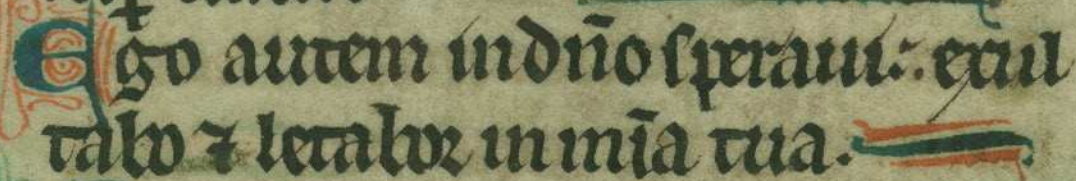 Ego autem in dn̄o speraui: exul
tabo ⁊ letabor in mīa tua.